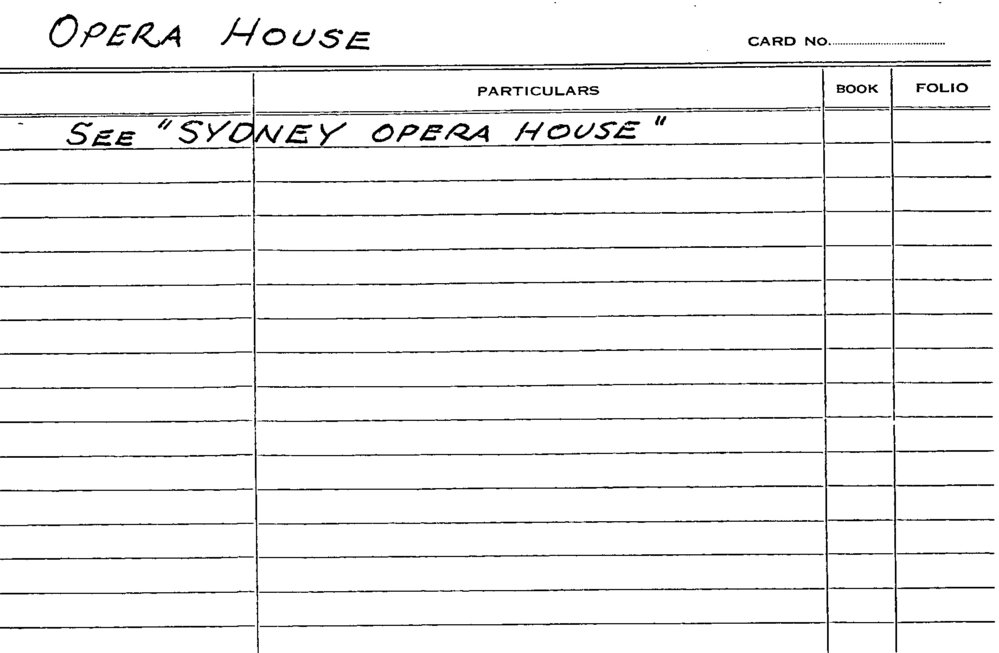 OPERA HOUSE
CARD No.
PARTICULARS BOOK FOLIO
SEE "SYDNEY OPERA HOUSE"